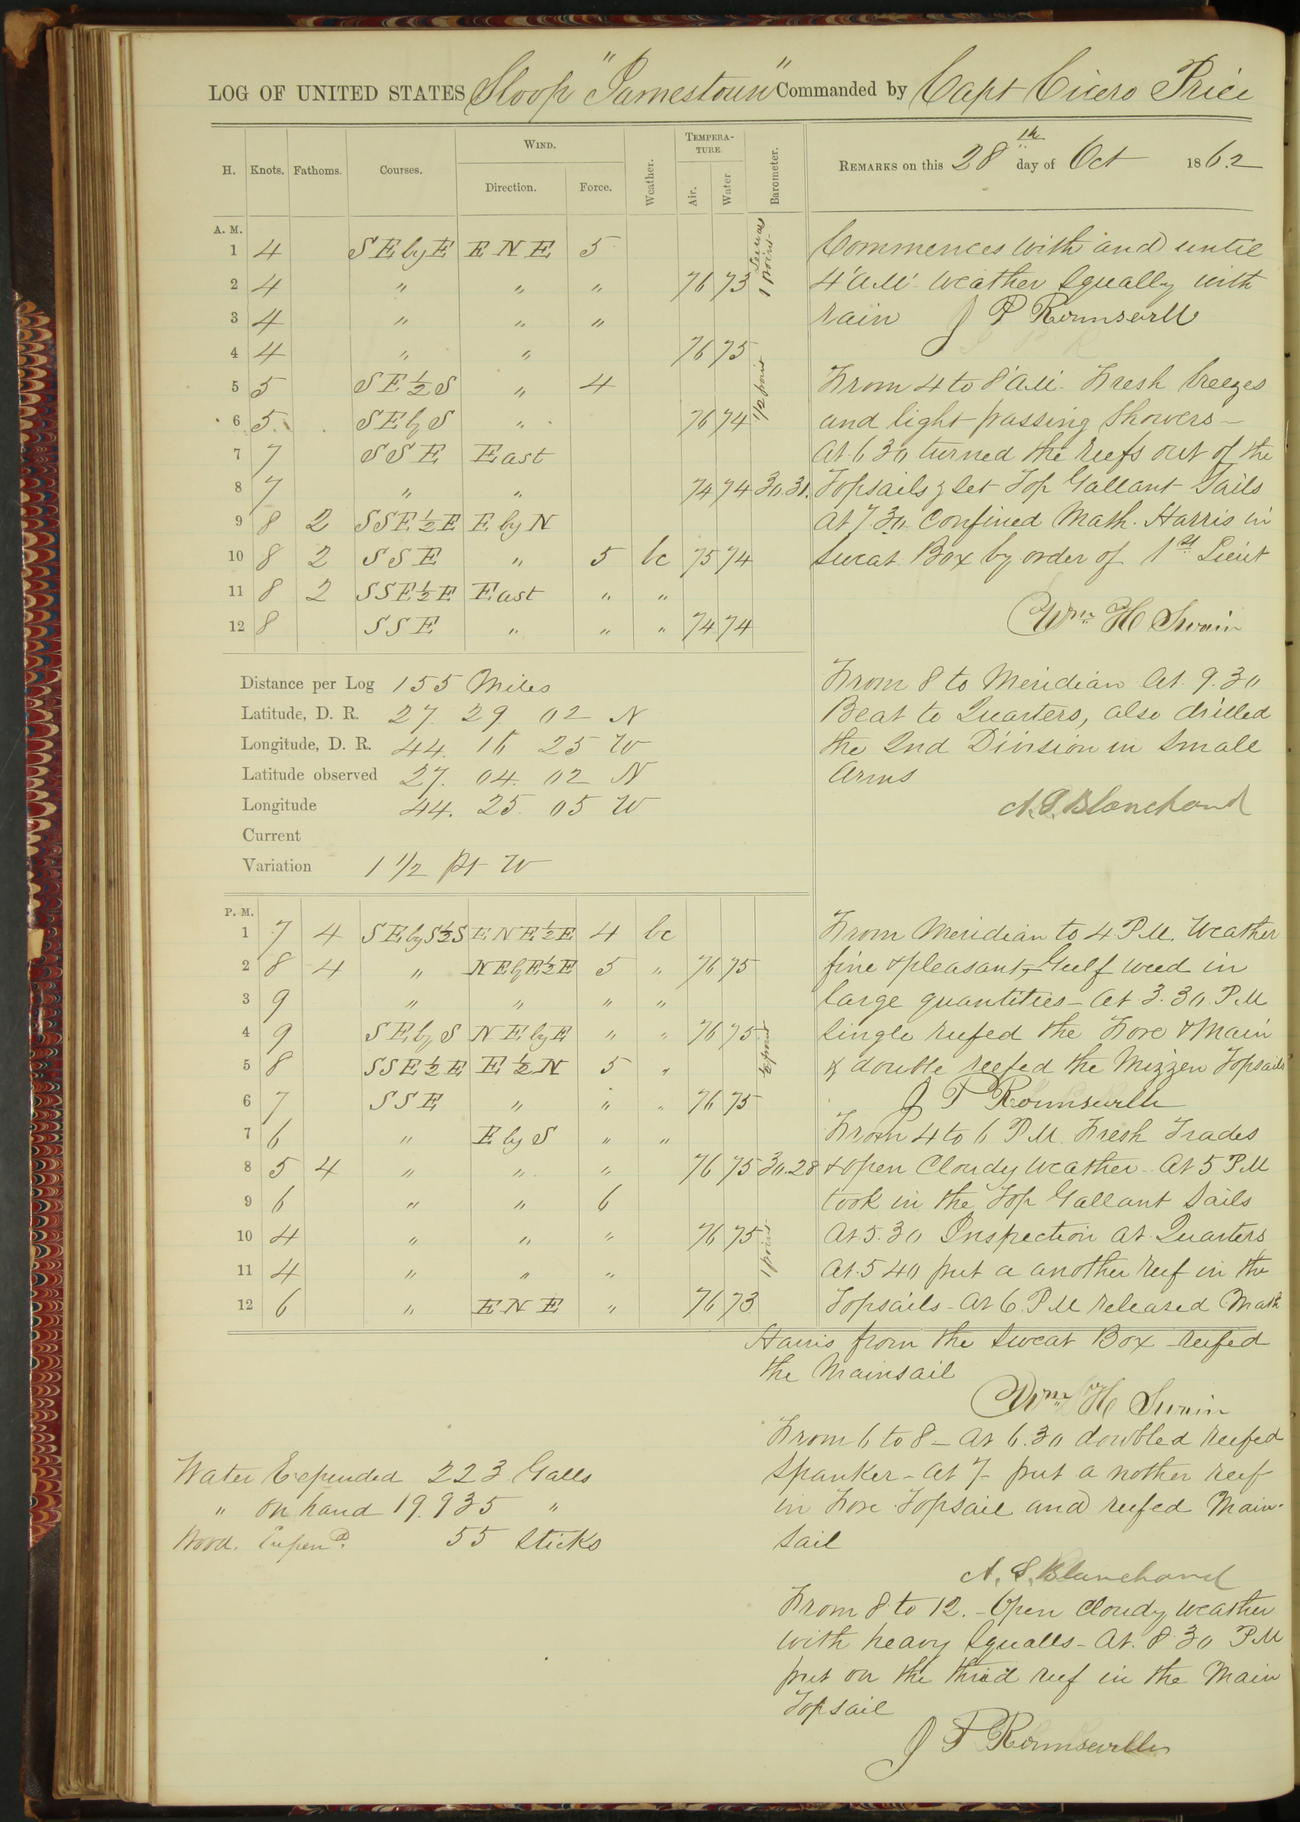 LOG OF UNITED STATES Sloop "Jamestown" Commanded by Capt Cicero Price
H. Knots. Fathoms. Courses. WIND. Direction. Force. Weather. TEMPERATURE. Air. Water Barometer. REMARKS on this 28th day of Oct 1862
A. M.
1 4 SEbyE ENE 5
2 4 " " " 76 73
1 point
3 4 " " "
4 4 " " 76 75
5 5 SE½S " 4
1/2 point
6 5 SEbyS " 76 74
7 7 SSE East
8 7 " " 74 74 30.31
9 8 2 SSE½E EbyN
10 8 2 SSE " 5 bc 75 74
11 8 2 SSE½E East " "
12 8 SSE " " " 74 74
Commences with and until
4 A.M. weather squally with
rain J P Rounsevelle
From 4 to 8 A.M. Fresh breezes
and light passing showers—
At 6 30 turned the reefs out of the
Topsails & set Top Gallant Sails
At 7.30 Confined Math. Harris in
Sweat Box by order of 1st Lieut
Wm H Swain
From 8 to Meridian At 9.30
Beat to Quarters, also drilled
the 2nd Division in small
arms
A. S. Blanchard
Distance per Log 155 Miles
Latitude, D. R. 27 29 02 N
Longitude, D. R. 44. 15 25 W
Latitude observed 27. 04. 02 N
Longitude 44. 25. 05 W
Current
Variation 1 1/2 pt W
P. M.
1 7 4 SEbyS½S ENE½E 4 bc
2 8 4 " NEbyE½E 5 " 76 75
3 9 " " " "
4 9 SEbyS NEbyE " " 76 75
½ point
5 8 SSE½E E½N 5 "
6 7 SSE " " " 76 75
7 6 " EbyS " "
8 5 4 " " " 76 75 30.28
9 6 " " 6
10 4 " " " 76 75
1 point
11 4 " " "
12 6 " ENE " 76 73
From Meridian to 4 P.M. Weather
fine & pleasant, Gulf weed in
large quantities— At 3.30 P.M
single reefed the Fore & Main
& double reefed the Mizzen Topsails
J P Rounsevelle
From 4 to 6 P.M. Fresh Trades
& open Cloudy weather. At 5 P.M
took in the Top Gallant Sails
At 5.30 Inspection at Quarters
At 5 40 put a another reef in the
Topsails— At 6. P.M released Math
Harris from the Sweat Box reefed
the Mainsail
Wm H Swain
From 6 to 8— At 6.30 doubled reefed
Spanker— At 7— put a nother reef
in Fore Topsail and reefed Main-
sail
A. S. Blanchard
From 8 to 12.— Open Cloudy weather
with heavy Squalls— At. 8 30 P.M
put on the third reef in the Main
Topsail
J P Rounsevelle
Water Expended 223 Galls
" on hand 19.935 "
Wood. Expend. 55 Sticks